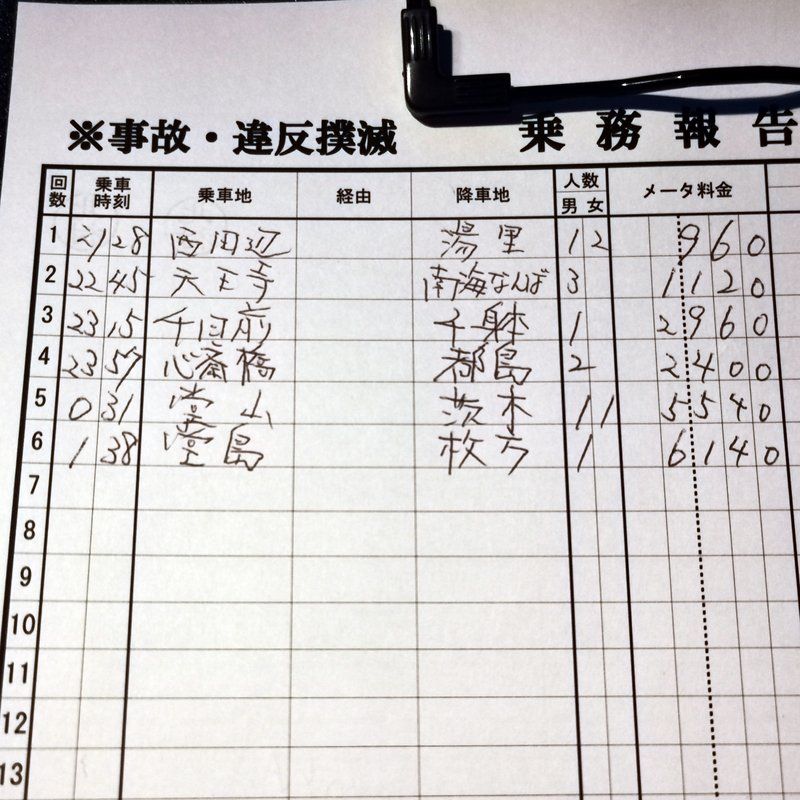 ※事故・違反撲滅 乗務報告
回数 乗車時刻 乗車地 経由 降車地 人数 男 女 メータ料金
1 21 28 西田辺 湯里 1 2 960
2 22 45 天王寺 南海なんば 3 1120
3 23 15 千日前 千躰 1 2960
4 23 57 心斎橋 都島 2 2400
5 0 31 堂山 茨木 1 1 5540
6 1 38 堂島 枚方 1 6140
7
8
9
10
11
12
13